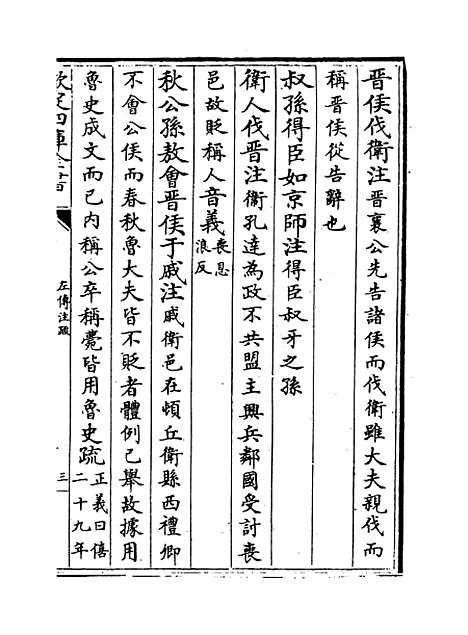 晉侯伐衛注晉襄公先告諸侯而伐衛雖大夫親伐而
稱晉侯從告辭也
叔孫得臣如京師注得臣叔牙之孫
衛人伐晉注衛孔達為政不共盟主興兵鄰國受討喪
邑故貶稱人音義喪息
浪反
秋公孫敖會晉侯于戚注戚衛邑在頓丘衛縣西禮卿
不會公侯而春秋魯大夫皆不貶者體例已舉故據用
魯史成文而已內稱公卒稱薨皆用魯史疏正義曰僖
二十九年
欽定四庫全書
左傳注疏
三